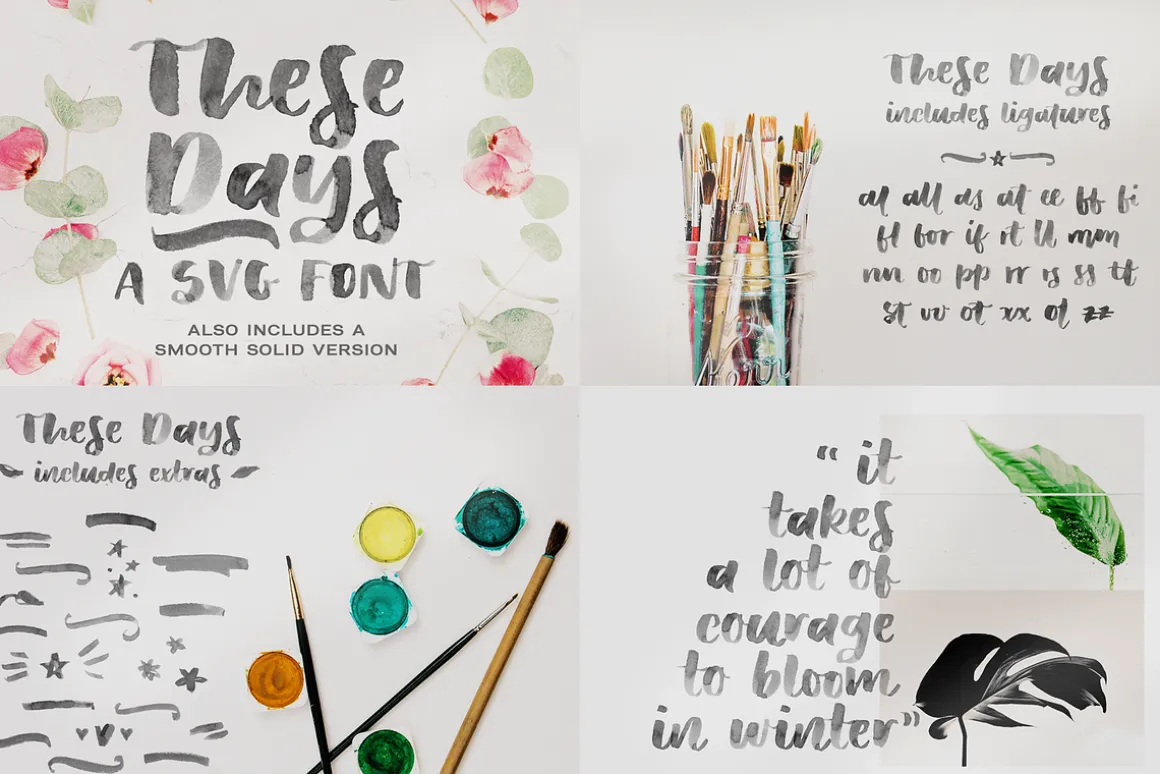 These
Days
A SVG FONT
ALSO INCLUDES A
SMOOTH SOLID VERSION
These Days
includes ligatures
al all as at ee ff fi
fl for if ll mm
nn oo pp rr ss tt
st vv ot xx ol zz
These Days
includes extras
“ it
takes
a lot of
courage
to bloom
in winter”